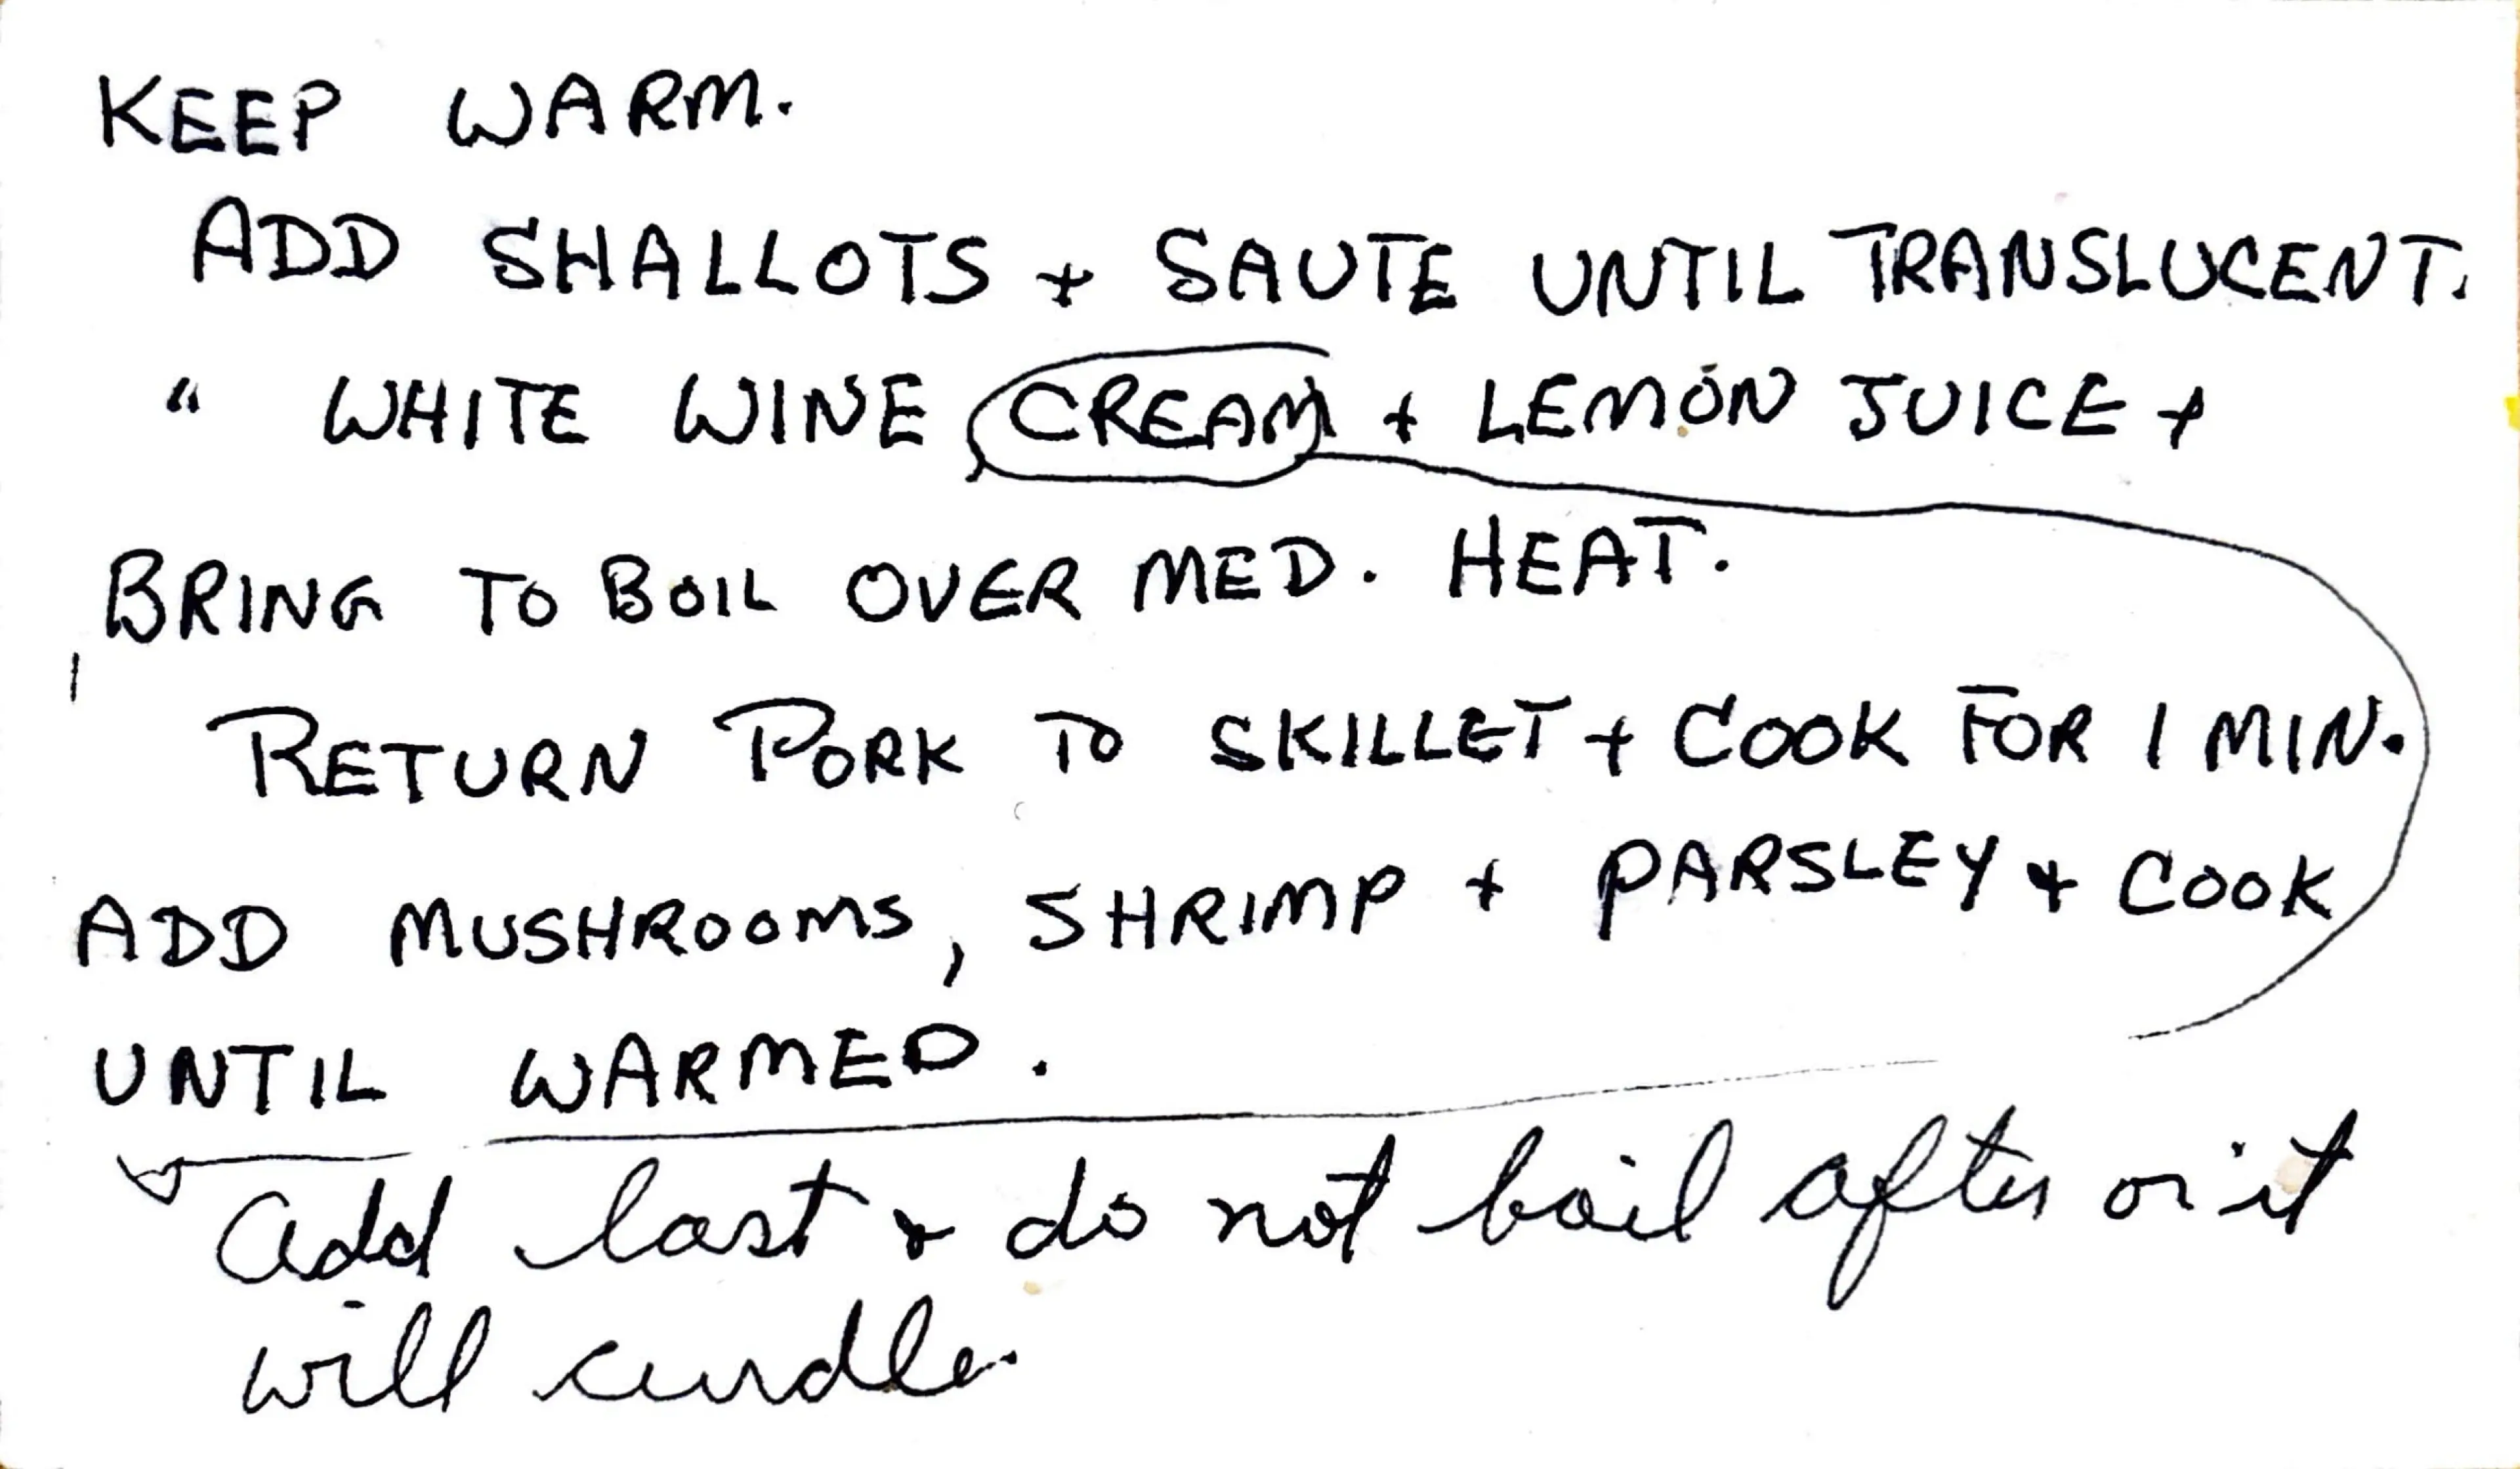 KEEP WARM.
ADD SHALLOTS + SAUTE UNTIL TRANSLUCENT.
" WHITE WINE CREAM + LEMON JUICE +
BRING TO BOIL OVER MED. HEAT.
RETURN PORK TO SKILLET + COOK FOR 1 MIN.
ADD MUSHROOMS, SHRIMP + PARSLEY + COOK
UNTIL WARMED.
add last & do not boil after or it
will curdle.